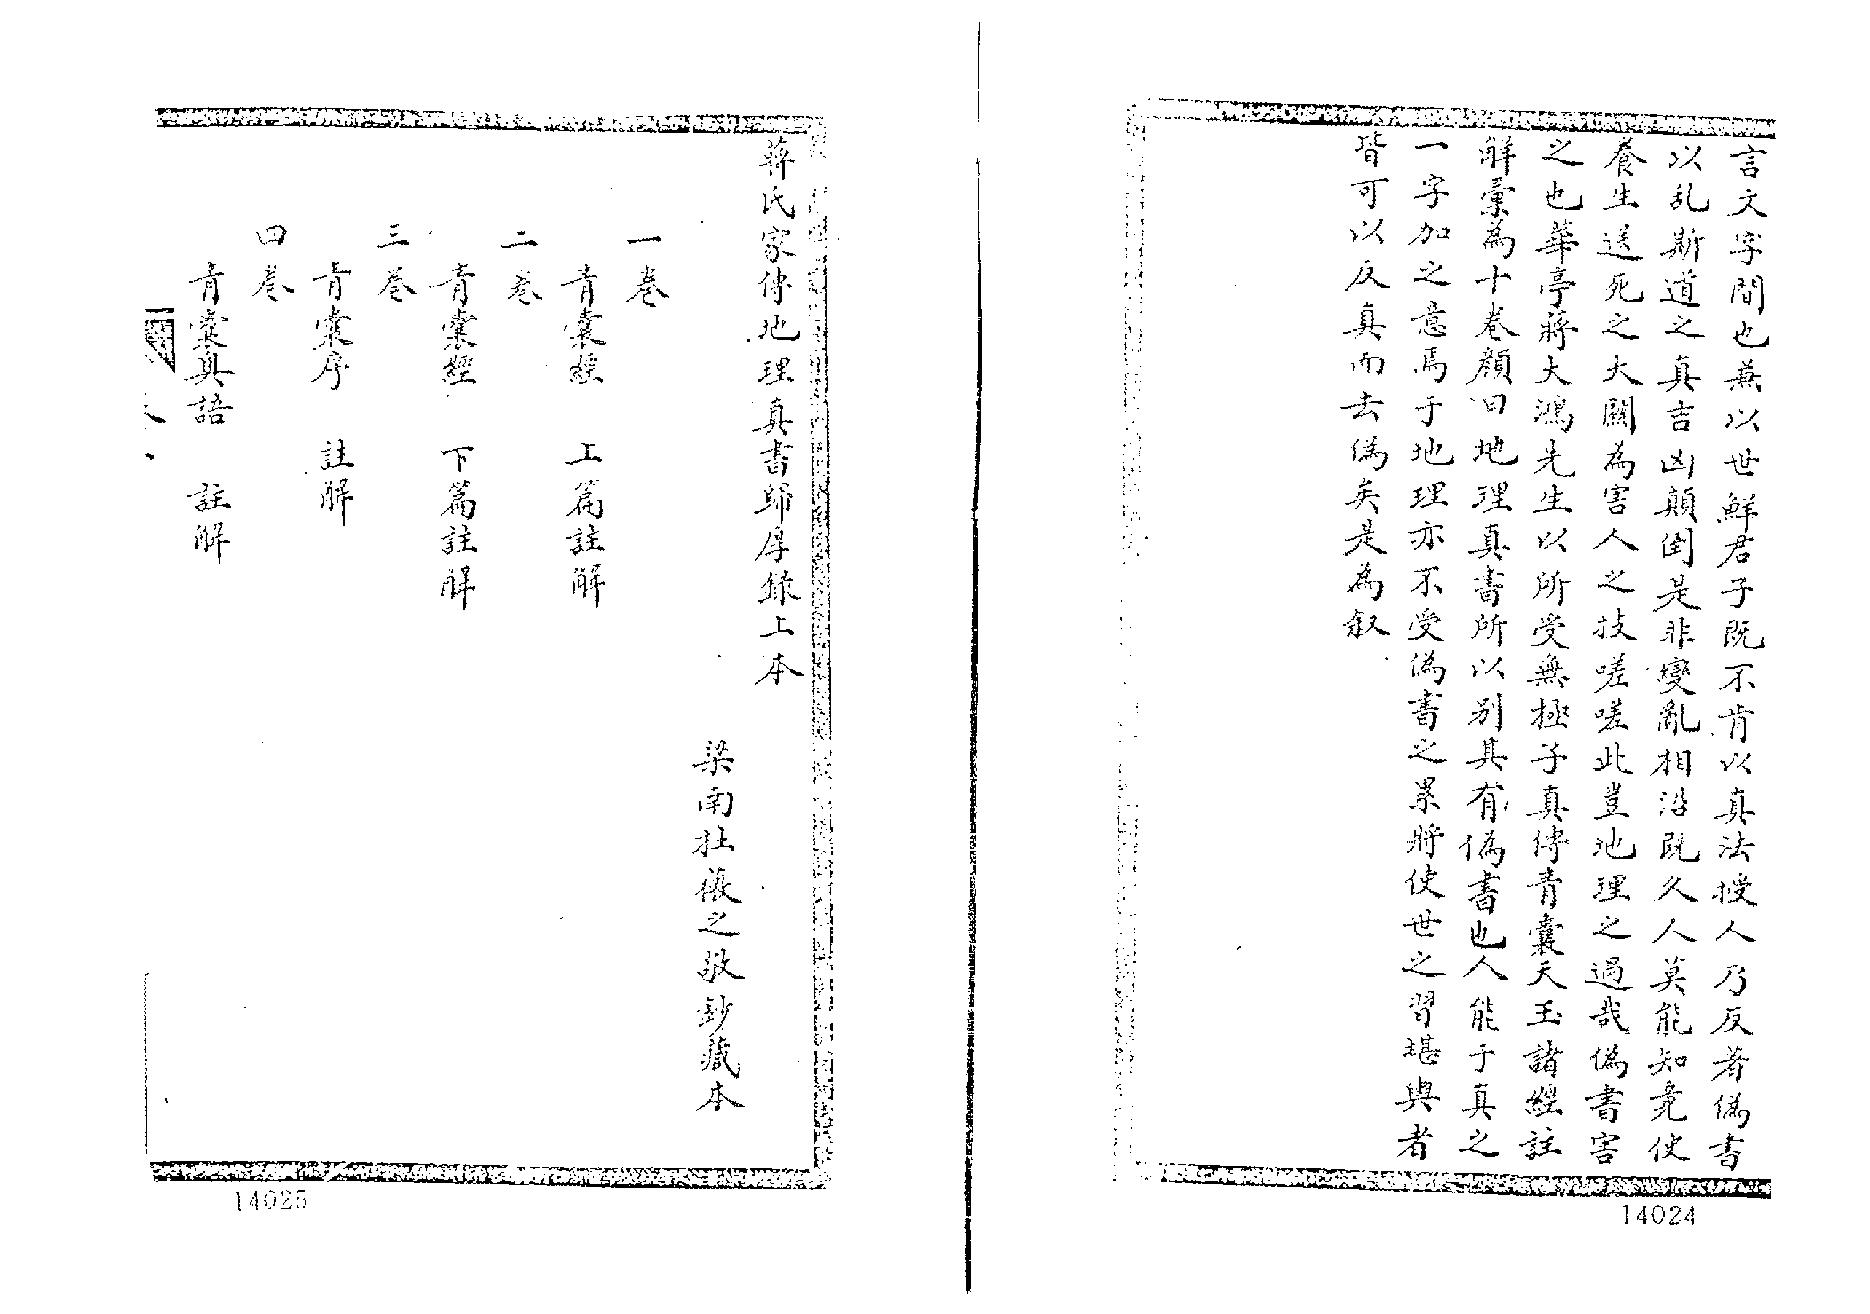 言文字間也蕪以世鮮君子既不肯以真法授人乃反著偽書
以乱斯道之真吉凶顛倒是非變亂相沿既久人莫能知竟使
養生送死之大關為害人之技嗟嗟此豈地理之過哉偽書害
之也華亭蔣大鴻先生以所受無極子真傳青囊天玉諸經註
解彙為十卷顏曰地理真書所以別其有偽書也人能于真之
一字加之意焉于地理亦不受偽書之累將使世之習堪輿者
皆可以反真而去偽矣是為叙
14024
蔣氏家傳地理真書歸厚錄上本
梁南杜徵之敬鈔藏本
一卷
青囊經 上篇註解
二卷
青囊經 下篇註解
三卷
青囊序 註解
四卷
青囊奧語 註解
14025